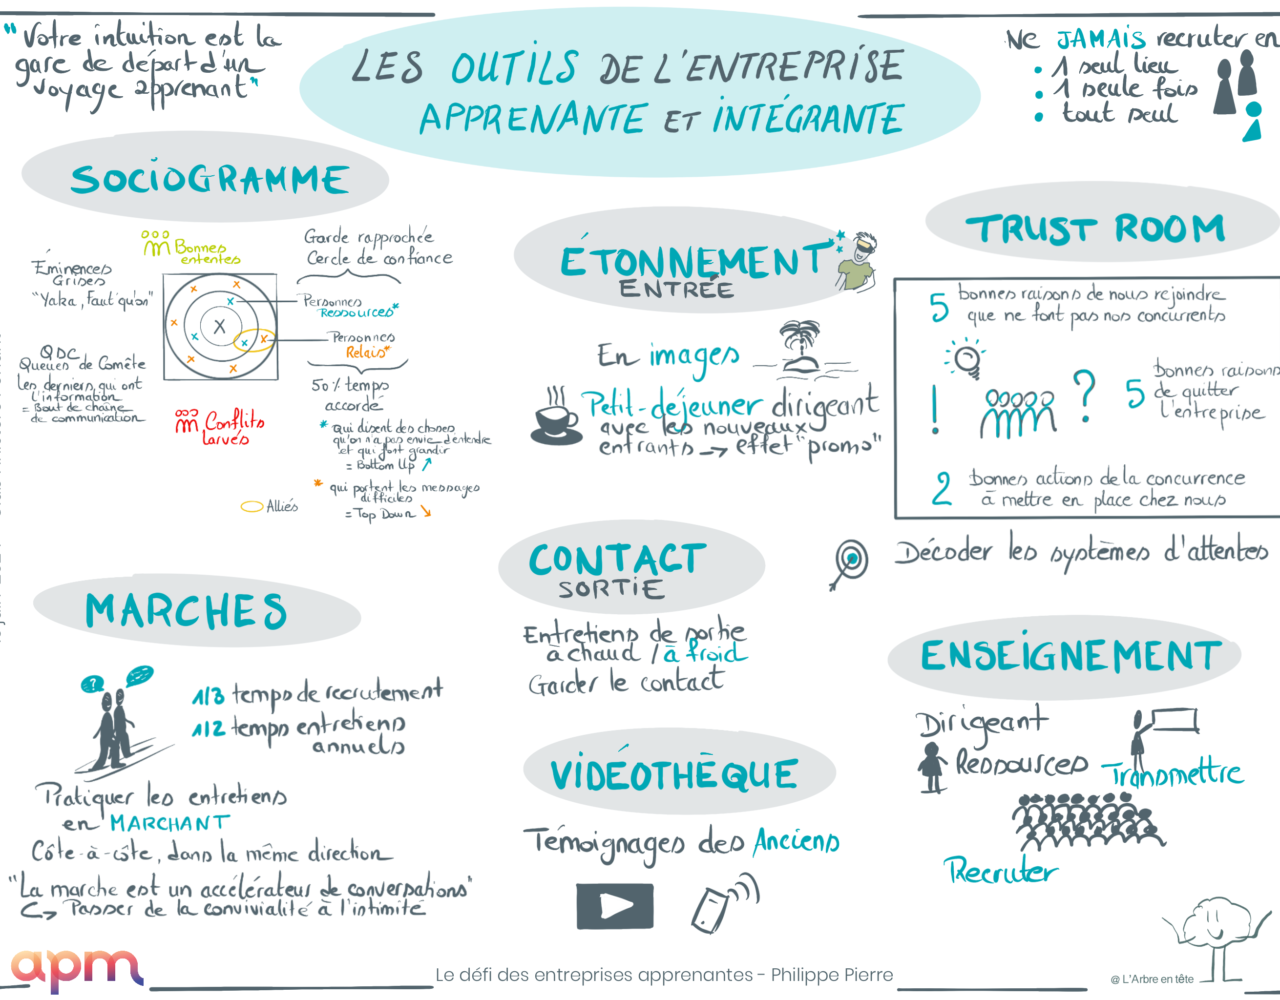 "Votre intuition est la
gare de départ d'un
voyage apprenant"
LES OUTILS DE L'ENTREPRISE
APPRENANTE ET INTÉGRANTE
Ne JAMAIS recruter en
• 1 seul lieu
• 1 seule fois
• tout seul
SOCIOGRAMME
Bonnes
ententes
Garde rapprochée
Cercle de confiance
Éminences
Grises
"Yaka, Faut qu'on"
Personnes
Ressources*
X
Personnes
Relais*
QDC
Queues de Comète
Les derniers qui ont
l'information
= Bout de chaine
de communication
50% temps
accordé
Conflits
larvés
* qui disent des choses
qu'on n'a pas envie d'entendre
et qui font grandir
= Bottom Up
* qui portent les messages
difficiles
= Top Down
Alliés
ÉTONNEMENT
ENTRÉE
En images
Petit-déjeuner dirigeant
avec les nouveaux
entrants → effet "promo"
TRUST ROOM
5 bonnes raisons de nous rejoindre
que ne font pas nos concurrents
! ?
5 bonnes raisons
de quitter
l'entreprise
2 bonnes actions de la concurrence
à mettre en place chez nous
Décoder les systèmes d'attentes
MARCHES
?
1/3 temps de recrutement
1/2 temps entretiens
annuels
Pratiquer les entretiens
en MARCHANT
Côte-à-côte, dans la même direction
"La marche est un accélérateur de conversations"
↪ Passer de la convivialité à l'intimité
CONTACT
SORTIE
Entretiens de sortie
à chaud / à froid
Garder le contact
VIDÉOTHÈQUE
Témoignages des Anciens
ENSEIGNEMENT
Dirigeant
Ressources
Transmettre
Recruter
apm
Le défi des entreprises apprenantes - Philippe Pierre
@ L'Arbre en tête